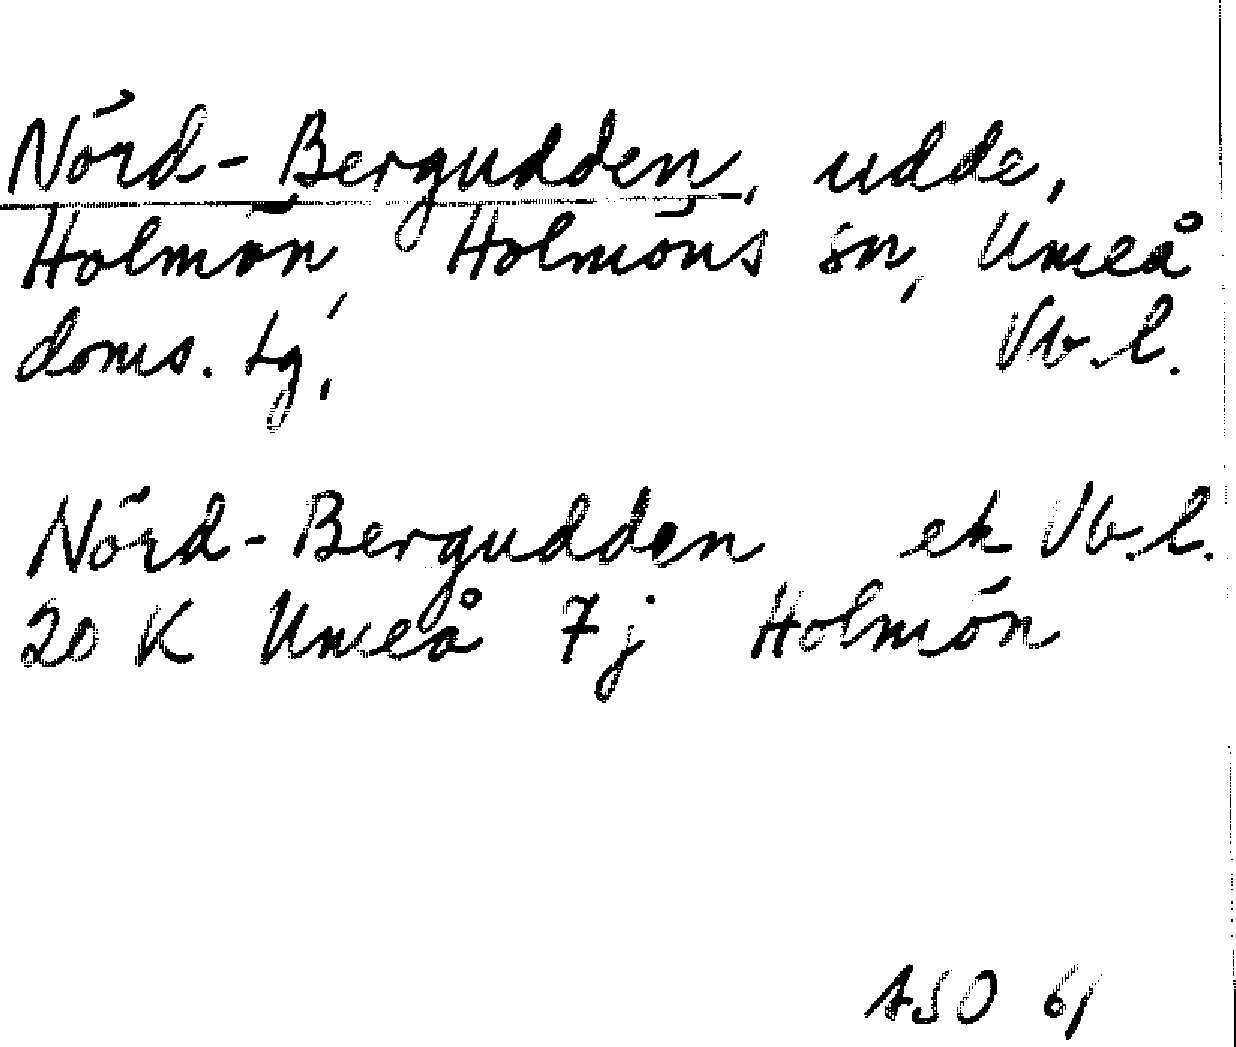 Nörd-Bergudden, udde,
Holmön, Holmöns sn, Umeå
doms. tg, Vb. l.
Nörd-Bergudden ek Vb. l.
20 K Umeå 7 j Holmön
ASO 61